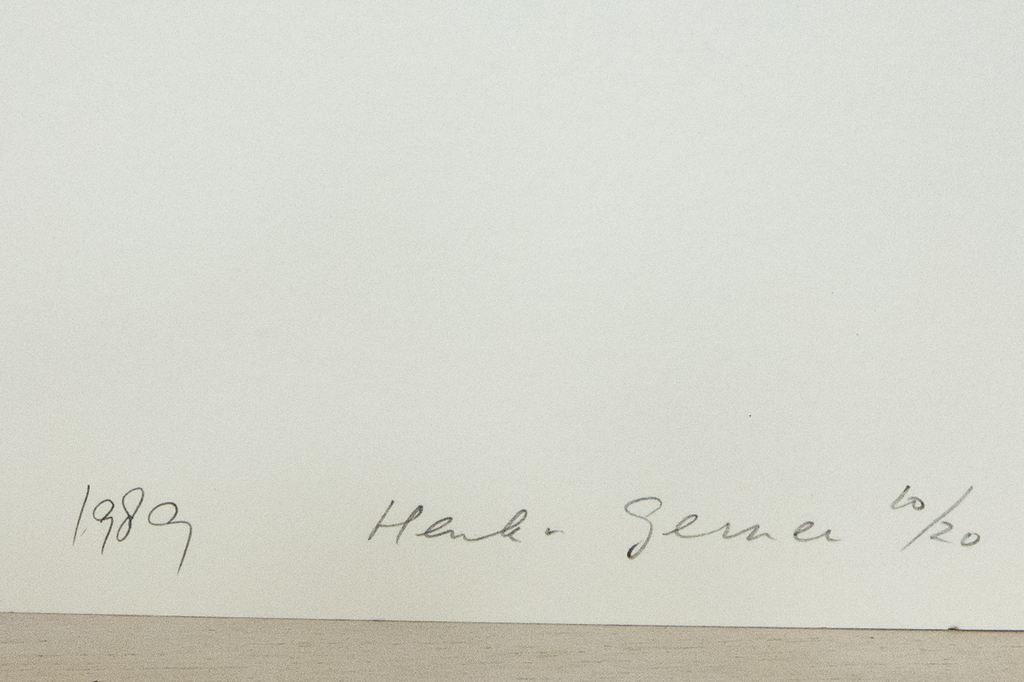 1989 Henk. Gerner 10/20